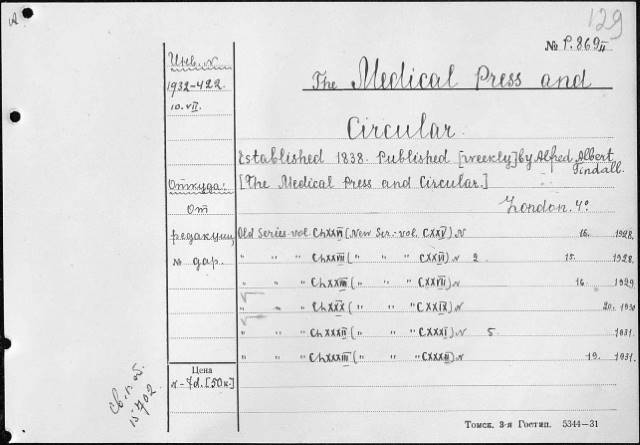 129
№ P.869 II
Инв. №
1932-422.
10. VII.
The Medical Press and
Circular.
Established 1838. Published [weekly] by Alfred Albert
Tindall.
[The Medical Press and Circular.]
London. 4º.
Откуда:
От
редакции
№ дар.
Old Series-vol. ChXXVI (New Ser.-vol. CXXV) N 16. 1928.
" " " ChXXVII (" " " CXXVI) N 2 15. 1928.
" " " ChXXVIII (" " " CXXVII) N 16. 1929
" " " ChXXX (" " " CXXIX) N 20. 1930
" " " ChXXXII (" " " CXXXI) N 5. 1931.
" " " ChXXXIII (" " " CXXXII) N 19. 1931.
Цена
7d. [50к]
15702
Томск. 3-я Гостип. 5344—31